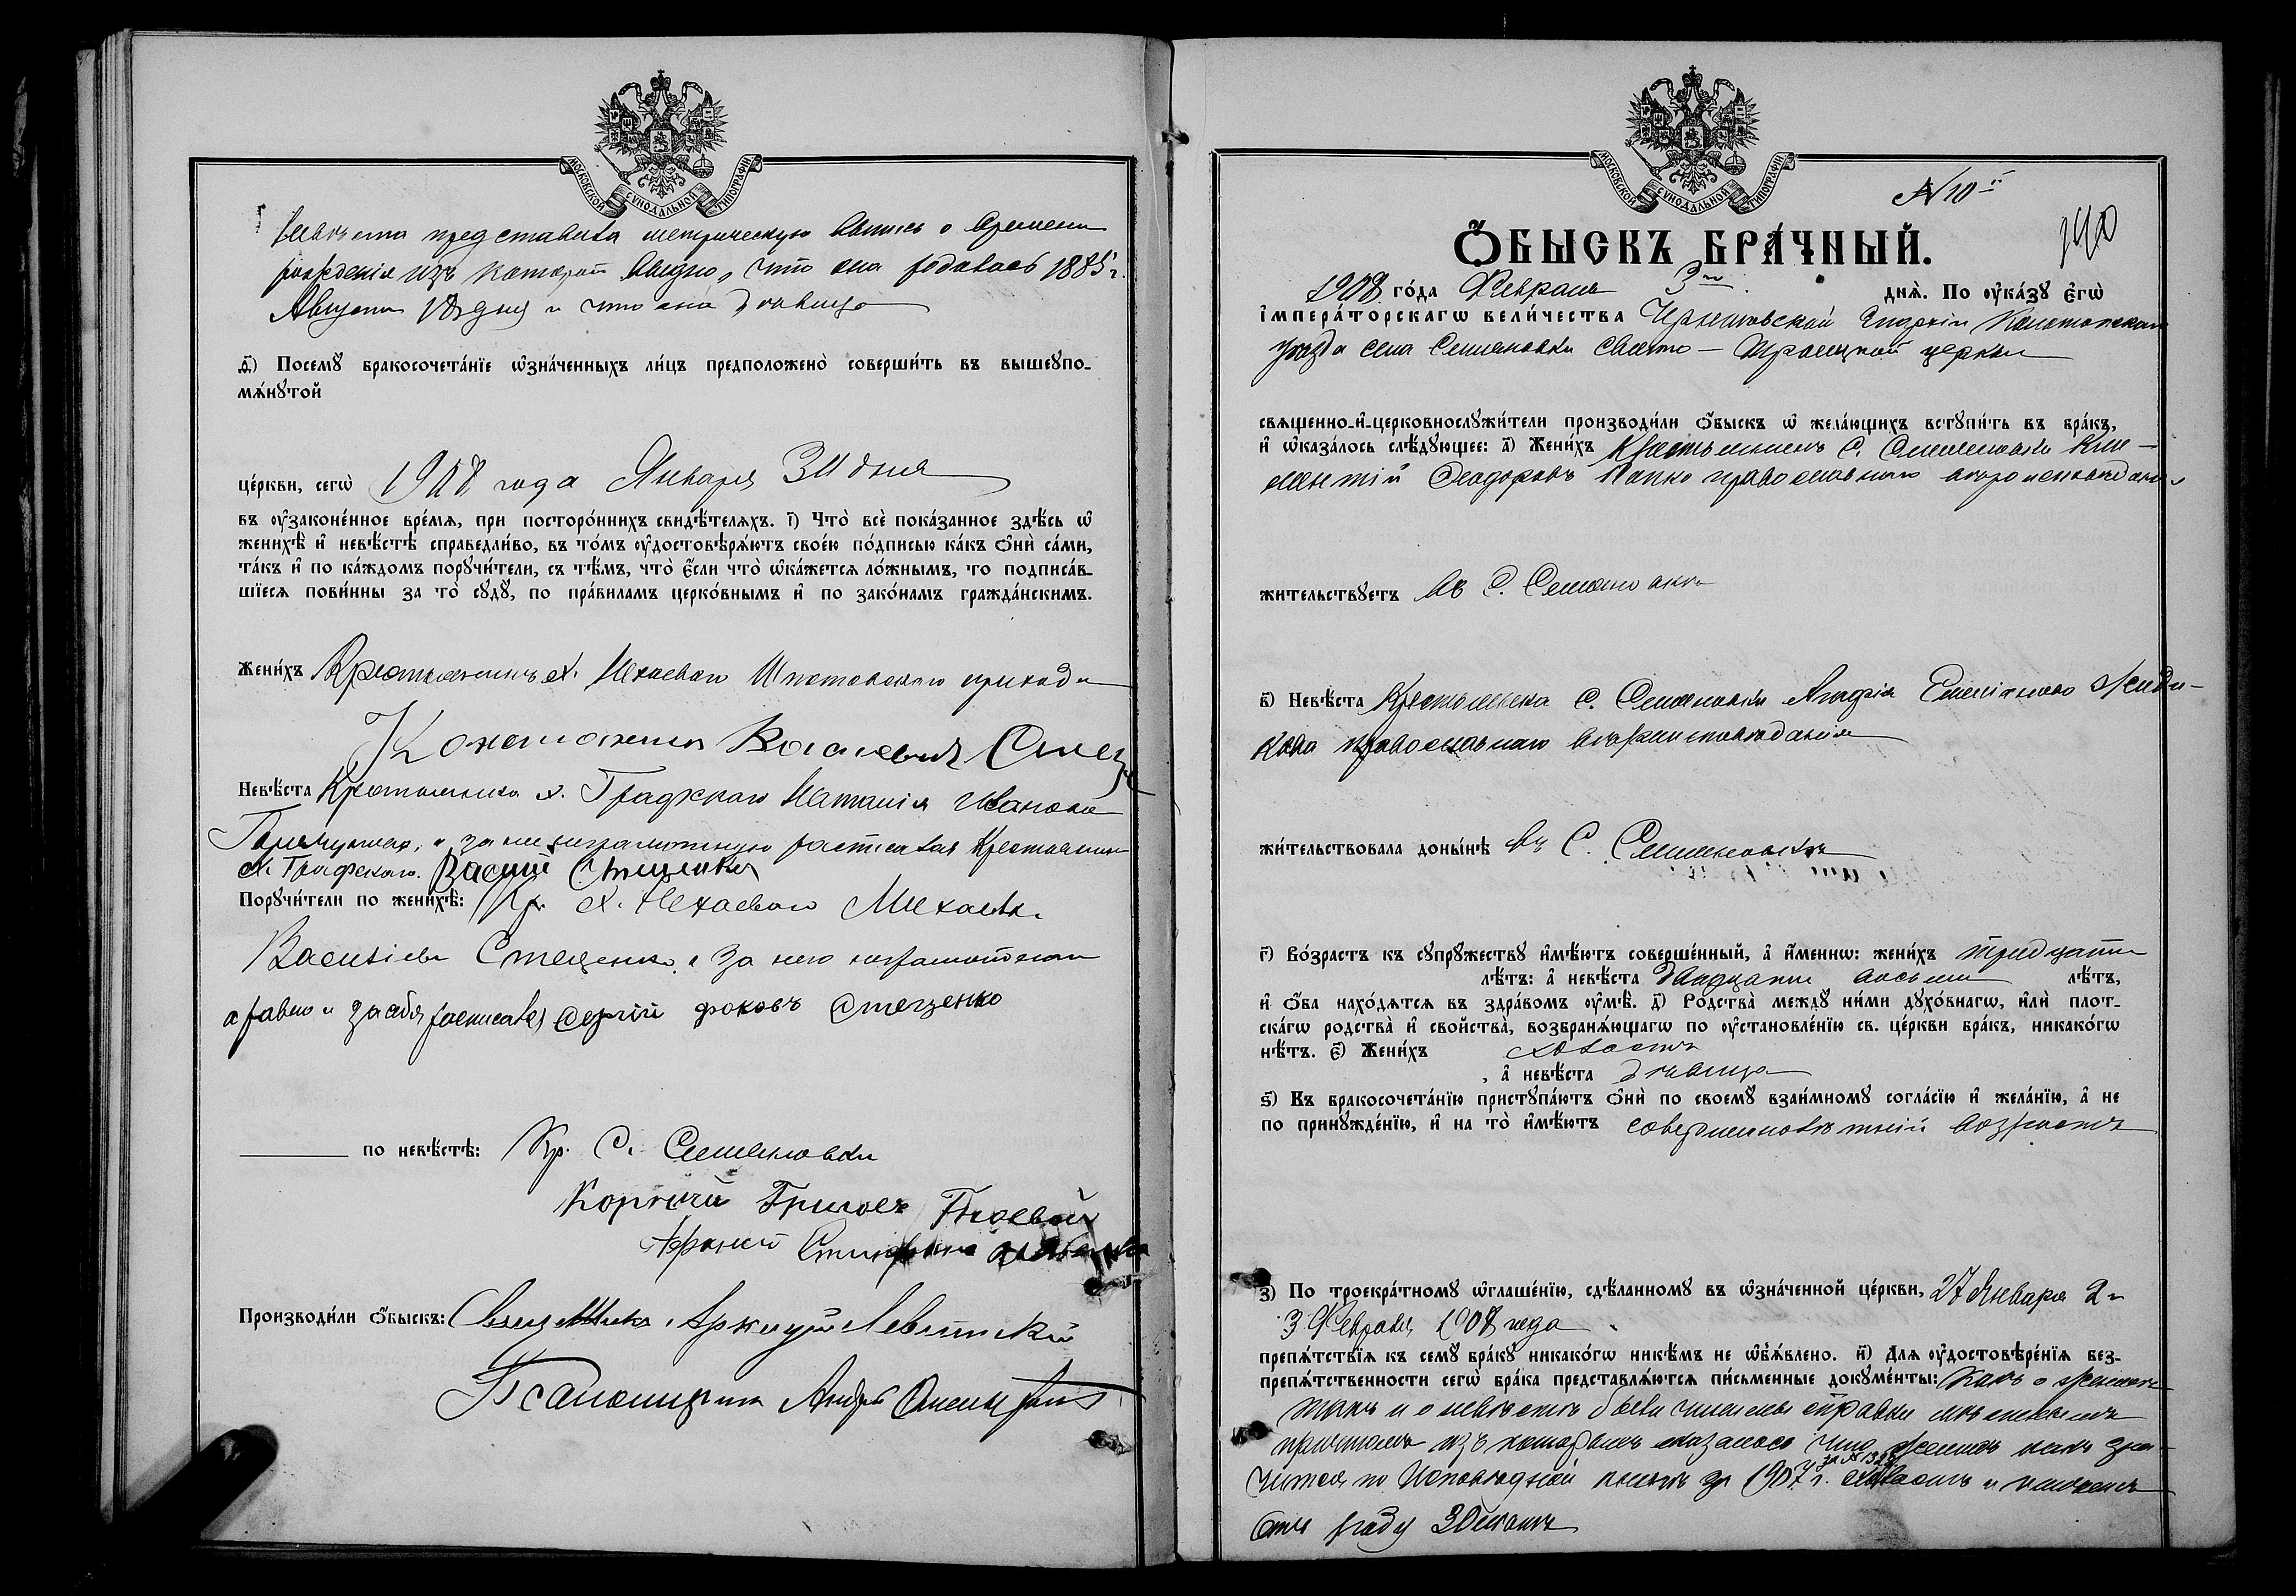 МОСКОВСКОЙ СѴНОДАЛЬНОЙ ТИПОГРАФІИ
Невѣста представила метрическую выпись о времени
рожденія изъ которой видно, что она родилась 1885 г.
Августа 18 дня и что она дѣвица
д҃) Посемꙋ̀ бракосочета́нїе ѡ҆зна́ченныхъ ли́цъ предположено̀ соверши́ть въ вышеꙋпо-
мѧ́нꙋтой
це́ркви, сегѡ̀ 1908 года Января 30 дня
въ ᲂу҆законе́нное вре́мѧ, при посторо́ннихъ свидѣ́телѧхъ. і҃) Что̀ всѐ пока́занное здѣ́сь ѡ҆
женихѣ̀ и҆ невѣ́стѣ справедли́во, въ то́мъ ᲂу҆достовѣрѧ́ютъ свое́ю по́дписью ка́къ ѻ҆нѝ са́ми,
та́къ и҆ по ка́ждомъ порꙋчи́тели, съ тѣ́мъ, что̀ є҆́сли что̀ ѡ҆ка́жетсѧ ло́жнымъ, то подписа́в-
шїесѧ пови́нны за то̀ сꙋдꙋ̀, по пра́виламъ церко́внымъ и҆ по зако́намъ гражда́нскимъ.
Жени́хъ Крестьянинъ х. Нехаевки прихода
Константинъ Васильевъ
Невѣ́ста Крестьянка х. Графскаго Наталія Иванова
а за нее неграмотную расписался Крестьянинъ
х. Графскаго. Василій Стеценко
Порꙋчи́тели по женихѣ̀: Кр. х. Нехаевки Михаилъ
Васильевъ Стеценко, а за него неграмотнаго
а равно и за себя росписался Сергій фоковъ Стеценко
по невѣ́стѣ: Кр. С. Семеновки
Корнѣй
Производи́ли ѻ҆́быскъ: Священникъ Аркадій Левитскій
Псаломщикъ Андрей
МОСКОВСКОЙ СѴНОДАЛЬНОЙ ТИПОГРАФІИ
N 10й
140
Ѻ҆́БЫСКЪ БРА́ЧНЫЙ.
1908 го́да Февраля 3го днѧ̀. По ᲂу҆ка́зꙋ є҆гѡ̀
і҆мпера́торскагѡ вели́чества Черниговской Епархіи Конотопскаго
уѣзда села Семеновки Свято-Троицкой церкви
свѧщенно-и҆-церковнослꙋжи́тели производи́ли ѻ҆́быскъ ѡ҆ жела́ющихъ встꙋпи́ть въ бра́къ,
и҆ ѡ҆каза́лось слѣ́дꙋющее: а҃) Жени́хъ Крестьянинъ С. Семеновки Кли-
ментій Ѳеодоровъ Папко православнаго вѣроисповѣданія
жительствꙋетъ въ С. Семеновкѣ
в҃) Невѣ́ста Крестьянка С. Семеновки Агафія Емеліанова
кова православнаго вѣроисповѣданія
жи́тельствовала доны́нѣ въ С. Семеновкѣ
г҃) Во́зрастъ къ сꙋпрꙋ́жествꙋ и҆мѣ́ютъ соверше́нный, а҆ и҆́меннѡ: жени́хъ тридцати
лѣ́тъ: а҆ невѣ́ста двадцати восьми лѣ́тъ,
и҆ ѻ҆́ба нахо́дѧтсѧ въ здра́вомъ ᲂу҆мѣ̀. д҃) Ро́дства междꙋ̀ ни́ми дꙋхо́внагѡ, и҆лѝ плот-
ска́гѡ родства̀ и҆ сво́йства, возбранѧ́ющагѡ по ᲂу҆становле́нїю св. це́ркви бра́къ, никако́гѡ
нѣ́тъ. є҃) Жени́хъ холостъ
, а҆ невѣ́ста дѣвица
ѕ҃) Къ бракосочета́нїю пристꙋпа́ютъ ѻ҆нѝ по своемꙋ̀ взаи́мномꙋ согла́сїю и҆ жела́нїю, а҆ не
по принꙋжде́нїю, и҆ на то̀ и҆мѣ́ютъ совершеннолѣтній возрастъ
з҃) По троекра́тномꙋ ѡ҆глаше́нїю, сдѣ́ланномꙋ въ ѡ҆зна́ченной це́ркви, 27 Января 2 и
3 Февраля 1908 года
препѧ́тствїѧ къ семꙋ̀ бра́кꙋ никако́гѡ никѣ́мъ не ѡ҆б̾ѧ́влено. и҃) Длѧ ᲂу҆достовѣре́нїѧ без-
препѧ́тственности сегѡ̀ бра́ка представлѧ́ютсѧ пи́сьменные докꙋме́нты: Какъ о женихѣ
такъ и о невѣстѣ были чинимы справки мѣстнымъ
причтомъ изъ которыхъ оказалось что женихъ какъ зна-
чится по Исповѣдной книгѣ за 1907 г. холостъ и имѣетъ
отъ роду 30 лѣтъ